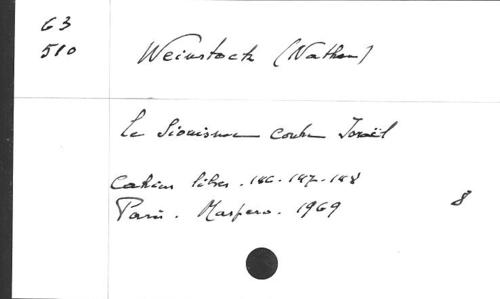 63
510
Weinstock (Nathan)
Le Sionisme contre Israël
Cahiers libres. 146-147-148
Paris. Maspero. 1969
8